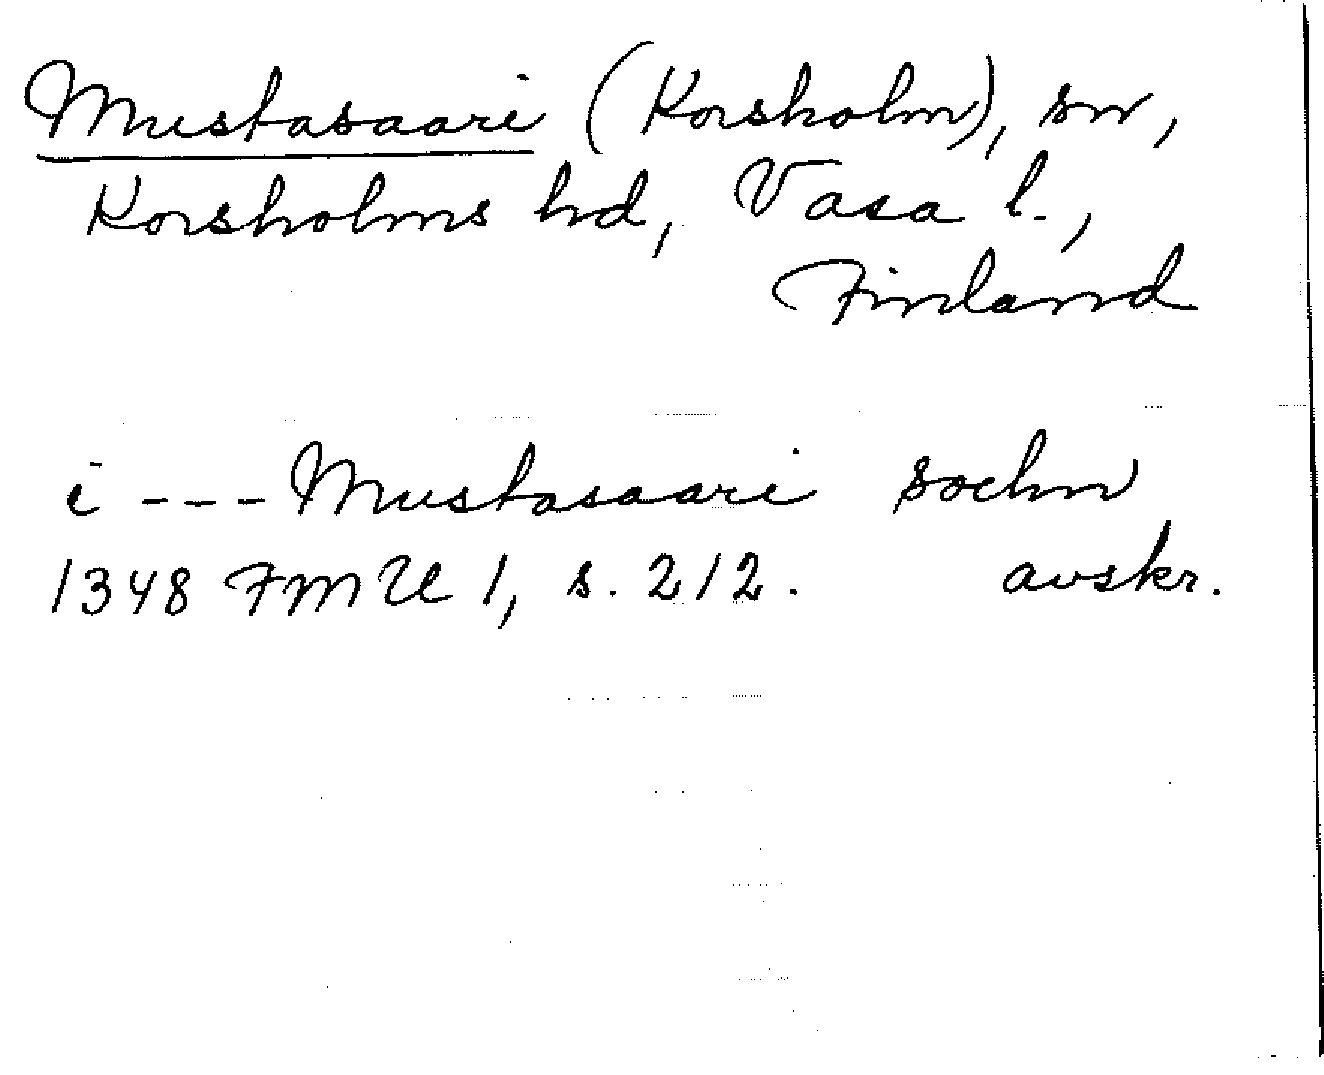 Mustasaari (Korsholm), sn,
Korsholms hd, Vasa l.,
Finland
i --- Mustasaari sochn
1348 FMU 1, s. 212. avskr.